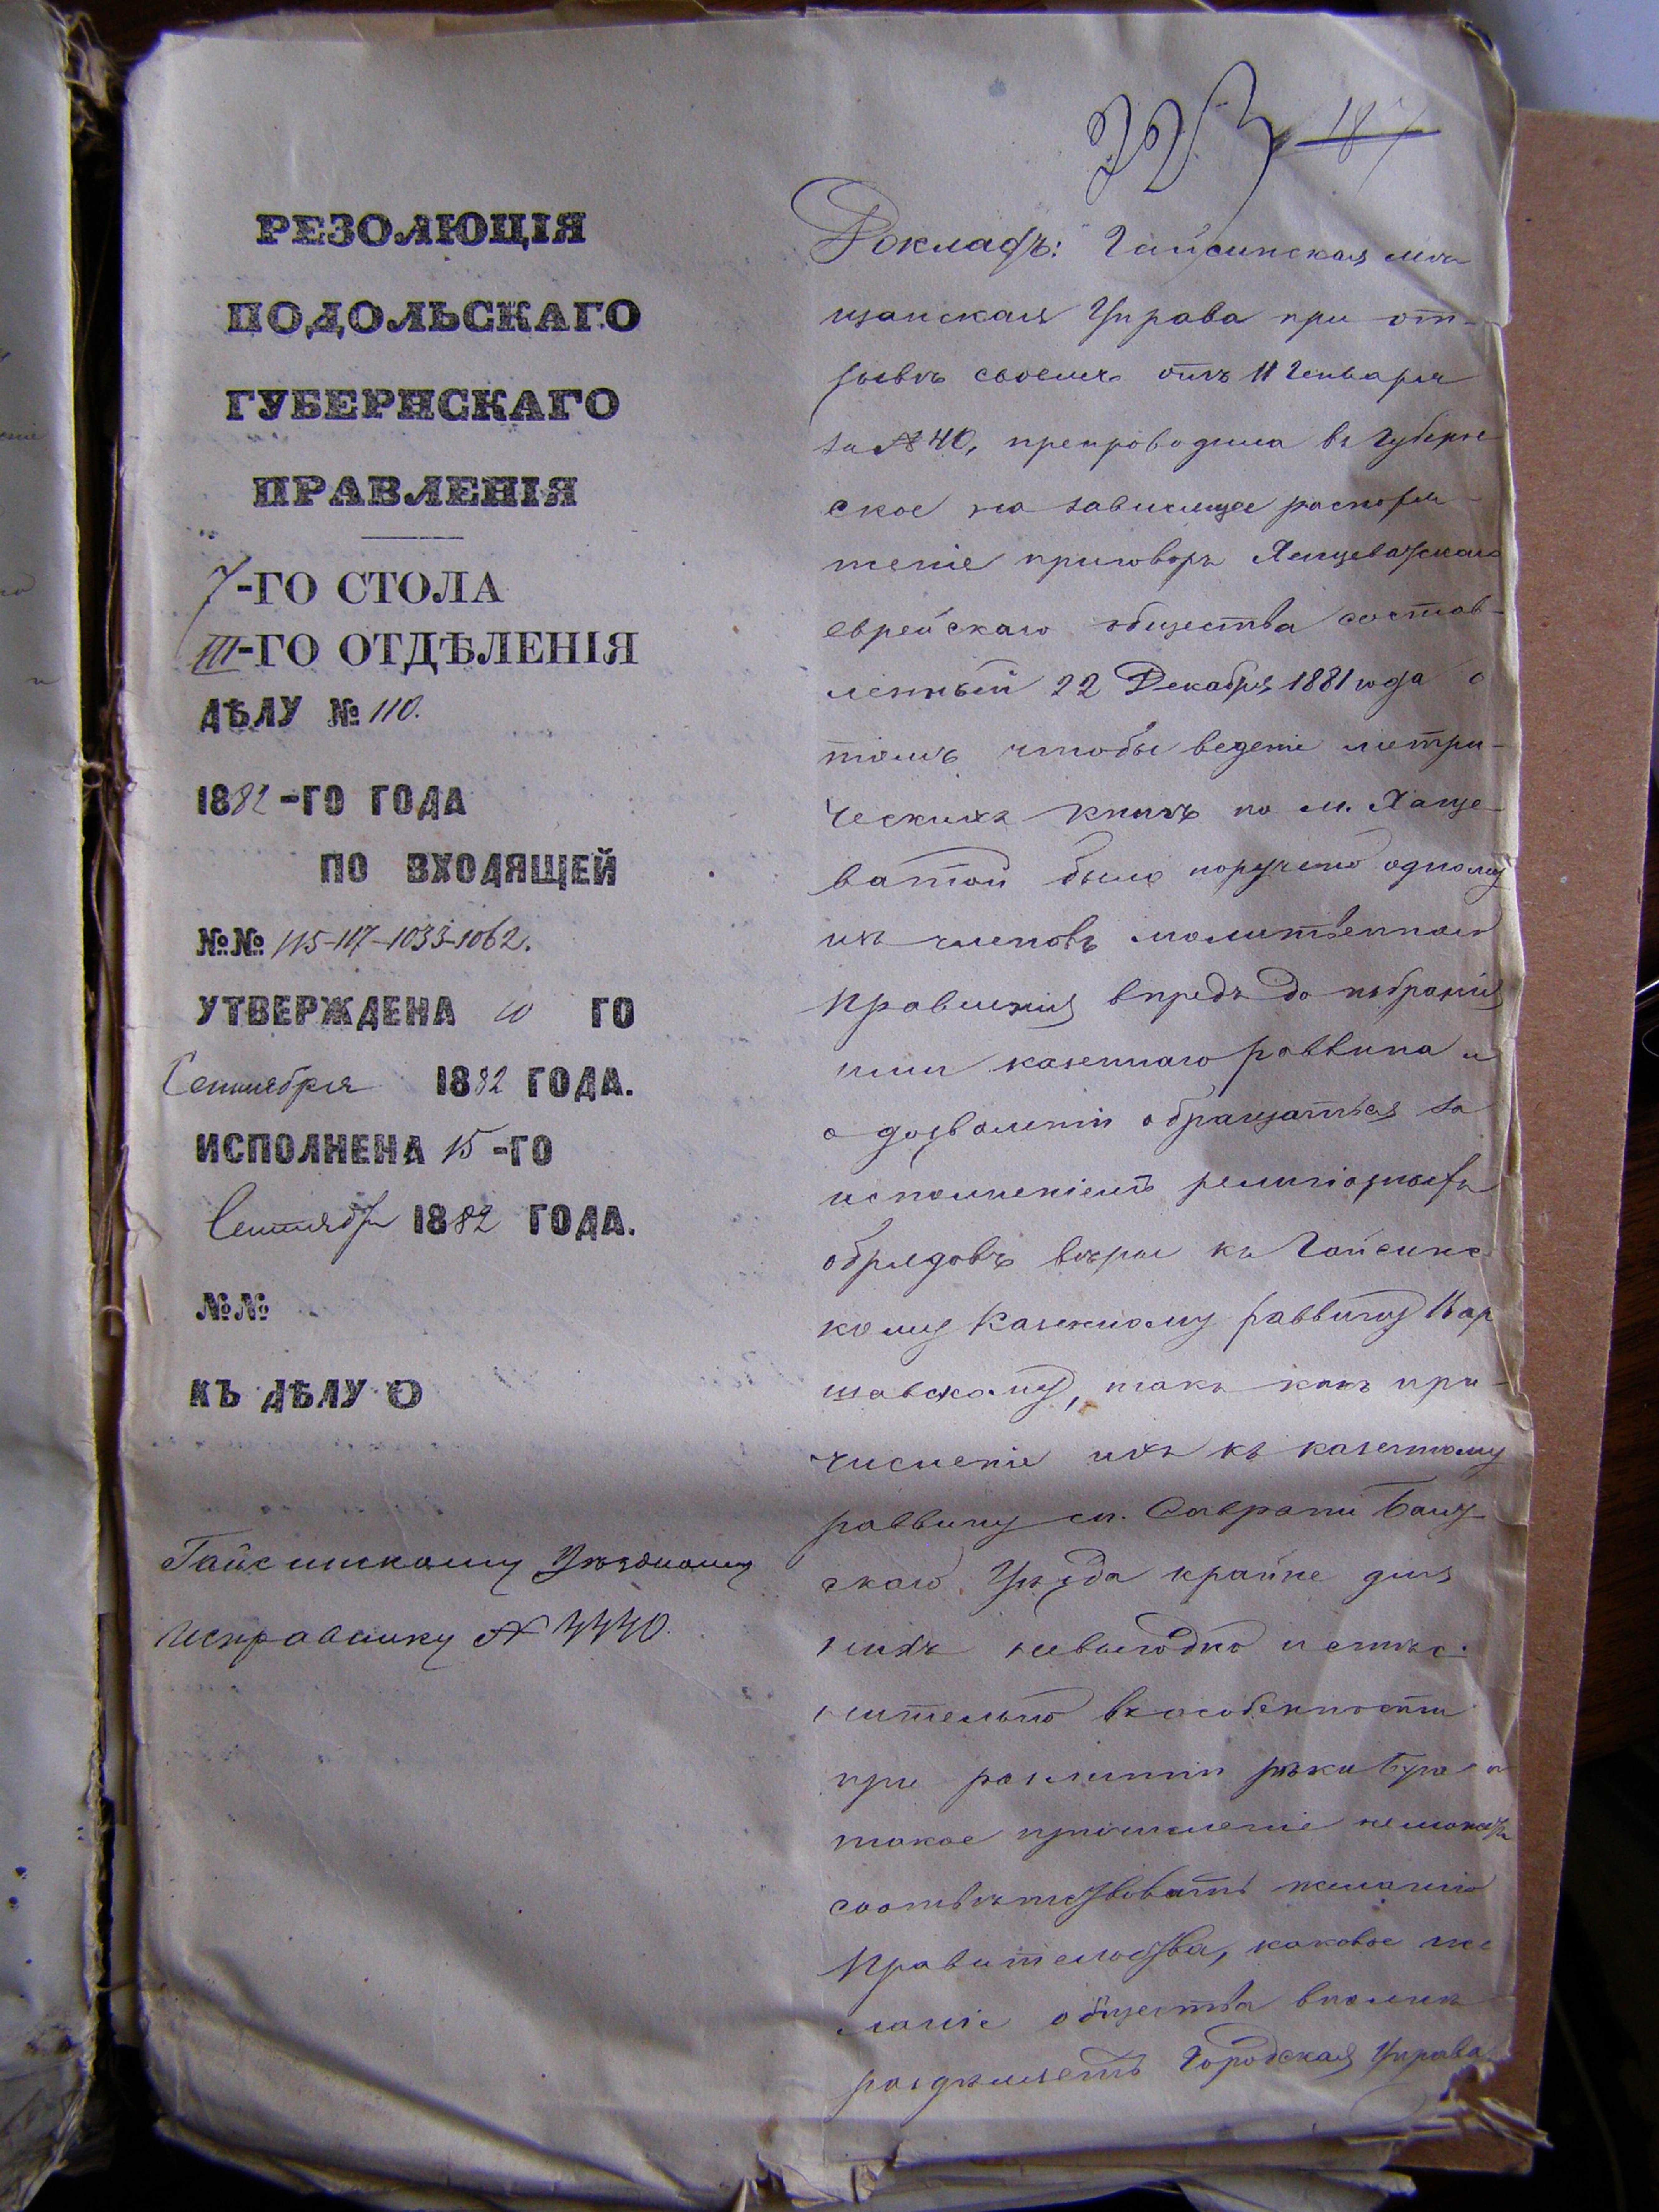 РЕЗОЛЮЦІЯ
ПОДОЛЬСКАГО
ГУБЕРНСКАГО
ПРАВЛЕНІЯ
7-ГО СТОЛА
III-ГО ОТДѢЛЕНІЯ
ДѢЛУ № 110.
1882-ГО ГОДА
ПО ВХОДЯЩЕЙ
№№ 115-117-1033-1062.
УТВЕРЖДЕНА 10 ГО
Сентября 1882 ГОДА.
ИСПОЛНЕНА 15-ГО
Сентября 1882 ГОДА.
№№
КЪ ДѢЛУ О
Гайсинскому Уѣздному
Исправнику № 4440.
187
Докладъ: Гайсинская мѣ
щанская Управа при от-
зывѣ своемъ отъ 11 Генваря
за № 40, препроводила въ Губернс
ское на зависящее распоря-
женіе приговоръ Хащеватскаго
еврейскаго общества состав-
ленный 22 Декабря 1881 года о
томъ чтобы веденіе метри-
ческихъ книгъ по м. Хаще-
ватой было поручено одному
изъ членовъ молитвеннаго
правленія впредь до избранія
ими казеннаго раввина и
о дозволеніи обращаться за
исполненіемъ религіозныхъ
обрядовъ вѣры къ Гайсинс
кому Казенному раввину Вар
шавскому, такъ какъ при-
численіе ихъ къ казенному
раввину м. Саврани Балт
скаго Уѣзда крайне для
нихъ невыгодно и стѣс-
нительно въ особенности
при разлитіи рѣки Буга и
такое причисленіе не можетъ
соотвѣтствовать желанію
Правительства, каковое же
ланіе общества вполнѣ
раздѣляетъ Городская Управа